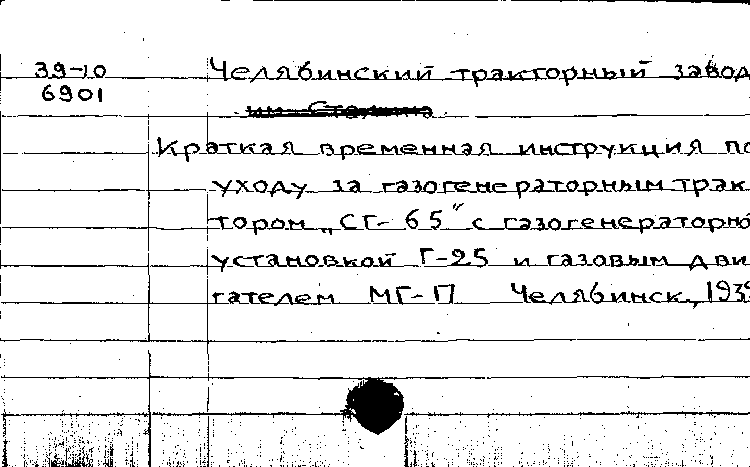 39-10 Челябинский тракторный завод
6901 им Сталина
Краткая временная инструкция по
уходу за газогенераторным трак-
тором „СГ-65" с газогенераторно
установкой Г-25 и газовым дви
гателем МГ-П Челябинск, 1939